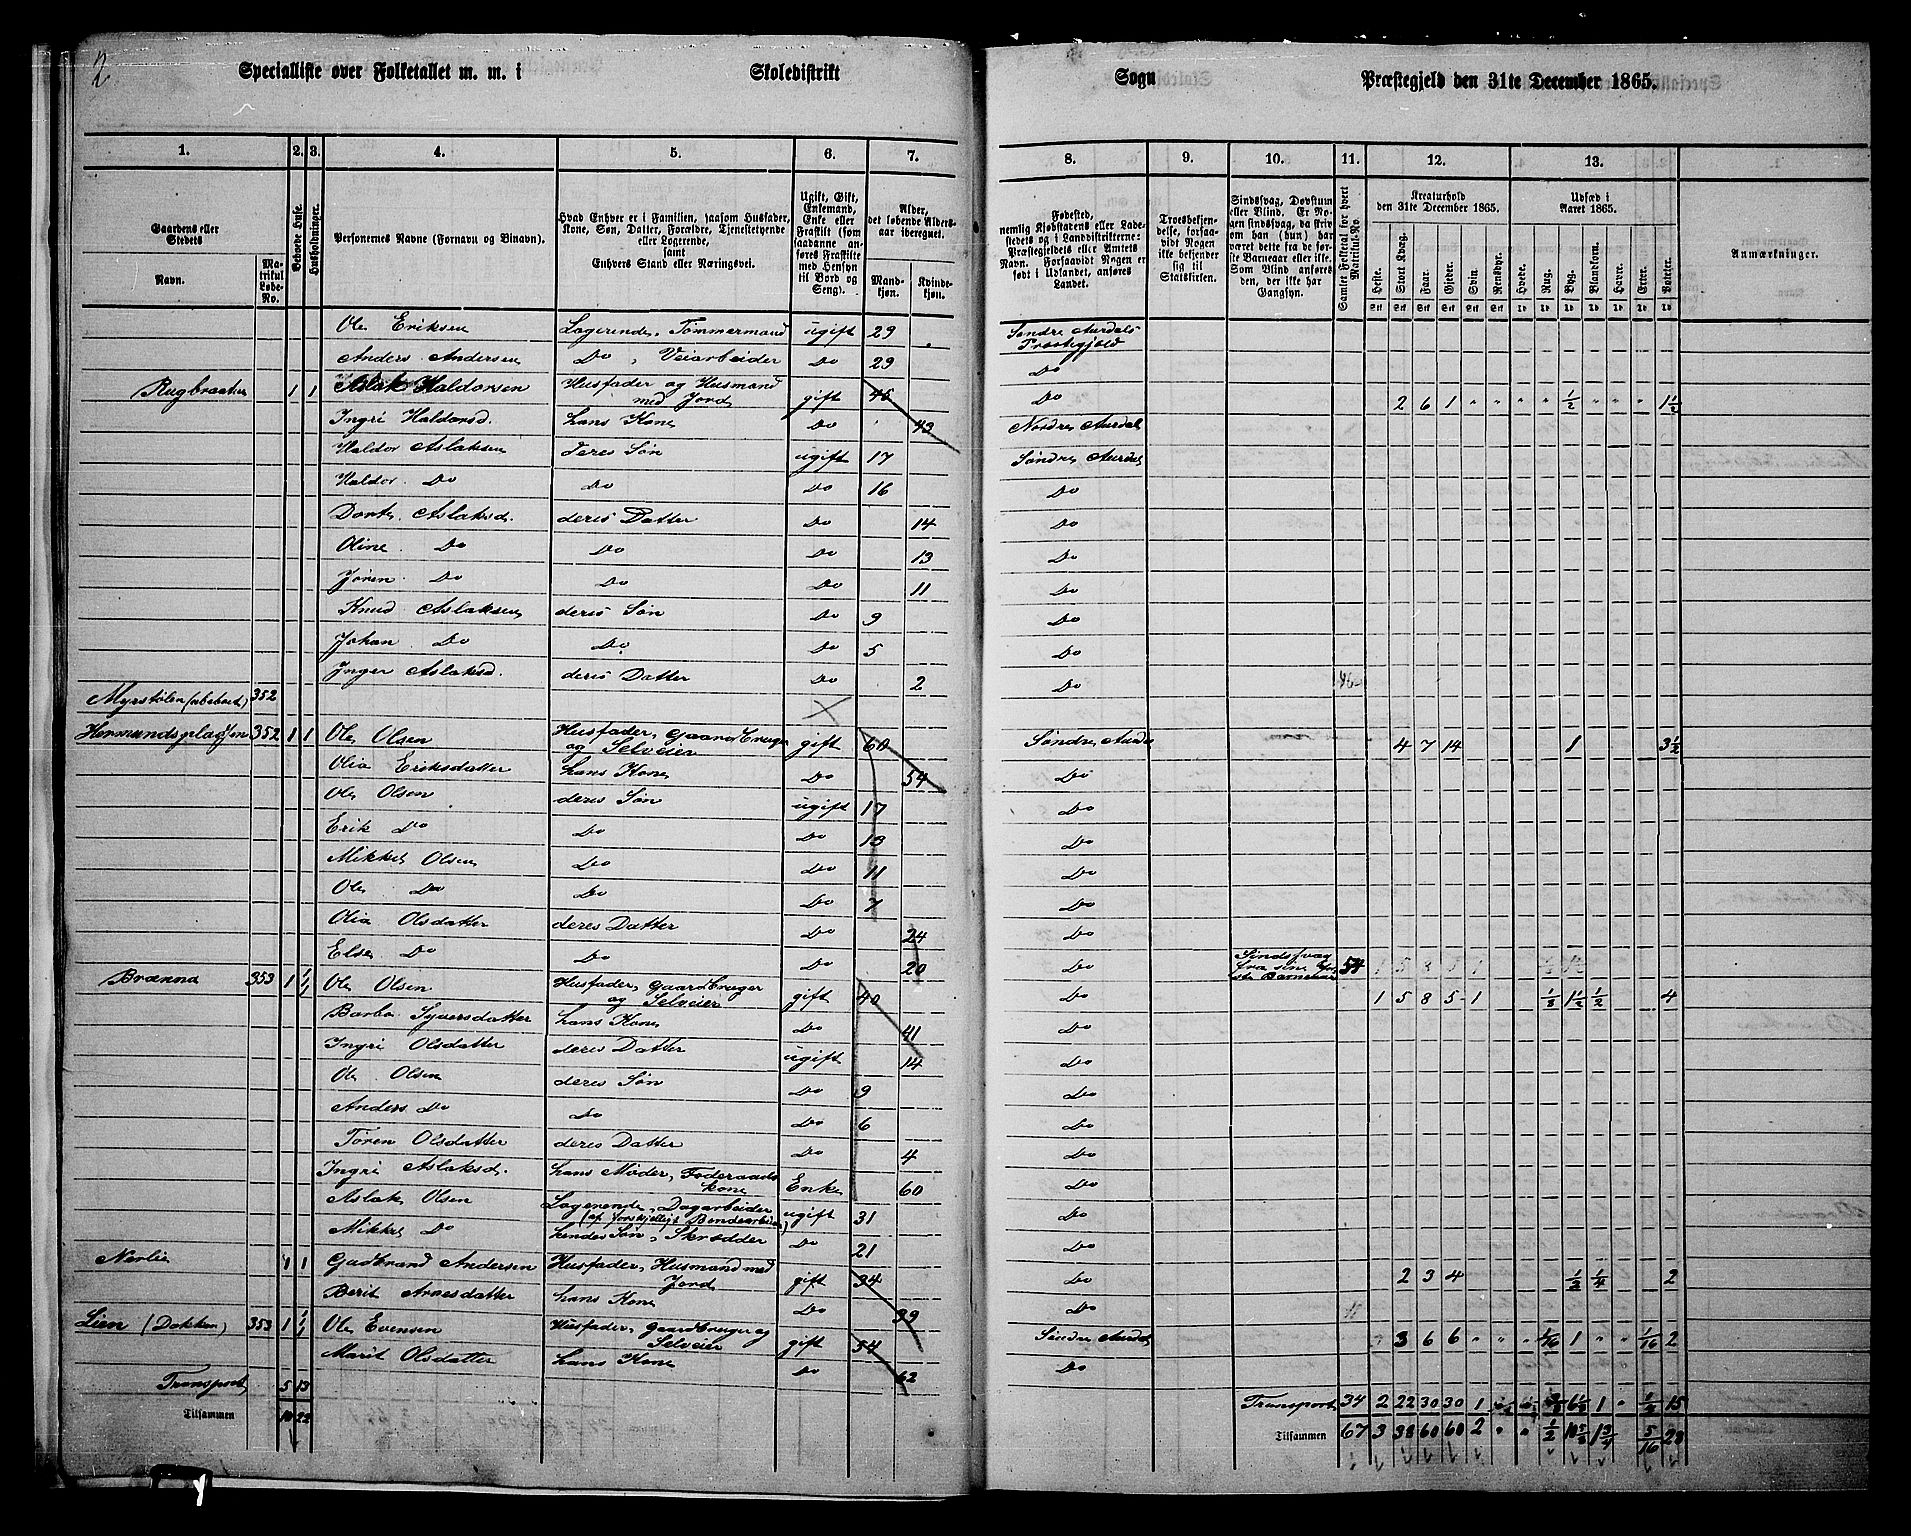 2
Specialliste over Folketallet m. m. i Skoledistrikt Sogn Præstegjeld den 31te December 1865.
1. 2. 3. 4. 5. 6. 7. 8. 9. 10. 11. 12. 13.
Gaardens eller Stedets
Navn.
Matrikul Løbe-No.
Beboede Huse.
Husholdninger.
Personernes Navne (Fornavn og Binavn).
Hvad Enhver er i Familien, saasom Husfader, Kone, Søn, Datter, Forældre, Tjenestetyende eller Logerende,
samt
Enhvers Stand eller Næringsvei.
Ugift, Gift, Enkemand, Enke eller Fraskilt (som saadanne anføres Fraskilte med Hensyn til Bord og Seng).
Alder, det løbende Alders-aar iberegnet.
Mandkjøn. Kvindekjøn.
Fødested,
nemlig Kjøbstadens eller Ladestedets og i Landdistrikterne: Præstegjeldets eller Amtets Navn. Forsaavidt Nogen er født i Udlandet, anføres Landet.
Troesbekjendelse, forsaavidt Nogen ikke bekjender sig til Statskirken.
Sindssvag, Døvstum eller Blind. Er Nogen sindssvag, da skrives om han (hun) har været dette fra de første Barneaar eller ikke. Som Blind anføres den, der ikke har Gangsyn.
Samlet Folketal for hvert Matrikul-No.
Kreaturhold den 31te December 1865.
Heste. Stort Kvæg. Faar. Gjeder. Svin. Rensdyr.
Udsæd i Aaret 1865.
Hvede. Rug. Byg. Blandkorn. Havre. Erter. Poteter.
Anmærkninger.
Ole Eriksen Logerende, Tømmermand ugift 29 Søndre Aurdals Præstegjeld
Anders Andersen Do, Veiarbeider Do 29 Do
Rugbraaten 1 1 Aslak Haldorsen Husfader og Husmand med Jord gift 45 Do 2 6 1 " " " " 1/2 " " " 1 1/2
Ingri Haldorsd. hans Kone Do 43 Nordre Aurdal
Haldor Aslaksen deres Søn ugift 17 Søndre Aurdal
Haldor Do Do Do 16 Do
Dorte Aslaksd. deres Datter Do 14 Do
Oline Do Do Do 13 Do
Jøren Do Do Do 11 Do
Knud Aslaksen deres Søn Do 9 Do
Johan Do Do Do 5 Do
Inger Aslaksd. deres Datter Do 2 Do
Myrstølen (ubeboet) 352
Hermundsplassen 352 1 1 Ole Olsen Husfader, Gaardbruger og Selveier gift 60 Søndre Aurdal 4 7 14 1 3 1/2
Olia Eriksdatter hans Kone Do 54 Do
Ole Olsen deres Søn ugift 17 Do
Erik Do Do Do 13 Do
Mikkel Olsen Do Do 11 Do
Ole Do Do Do 7 Do
Olia Olsdatter deres Datter Do 24 Do
Else Do Do Do 20 Do Sindssvag fra sine første Barneaar
Brænna 353 1 1/1 Ole Olsen Husfader, Gaardbruger og Selveier gift 40 Do 1 5 8 5 1 1/8 1 1/2 1/2 4
Barbo Syversdatter hans Kone Do 41 Do
Ingri Olsdatter deres Datter ugift 14 Do
Ole Olsen deres Søn Do 9 Do
Anders Do Do Do 6 Do
Tøren Olsdatter deres Datter Do 4 Do
Ingri Aslaksd. hans Moder, Føderaadskone Enke 60 Do
Aslak Olsen Logerende, Dagarbeider (af forskjelligt Bondearbeide) ugift 31 Do
Mikkel Do hendes Søn, Skrædder Do 21 Do
Nerlie 1 1 Gudbrand Andersen Husfader, Husmand med Jord gift 34 Do 2 3 4 1/2 1/4 2
Berit Arnesdatter hans Kone Do 39 Do
Lien (Dokken) 353 1 1/1 Ole Evensen Husfader, Gaardbruger og Selveier gift 54 Søndre Aurdal " 3 6 6 " " " 1/16 1 " " 1/16 2
Marit Olsdatter hans Kone Do 62 Do
Transport 5 13 Transport 34 2 22 30 30 1 1 " 1/2 15
Tilsammen 10 22 Tilsammen 67 3 38 60 60 2 " " 1/2 1 3/4 5/16 28